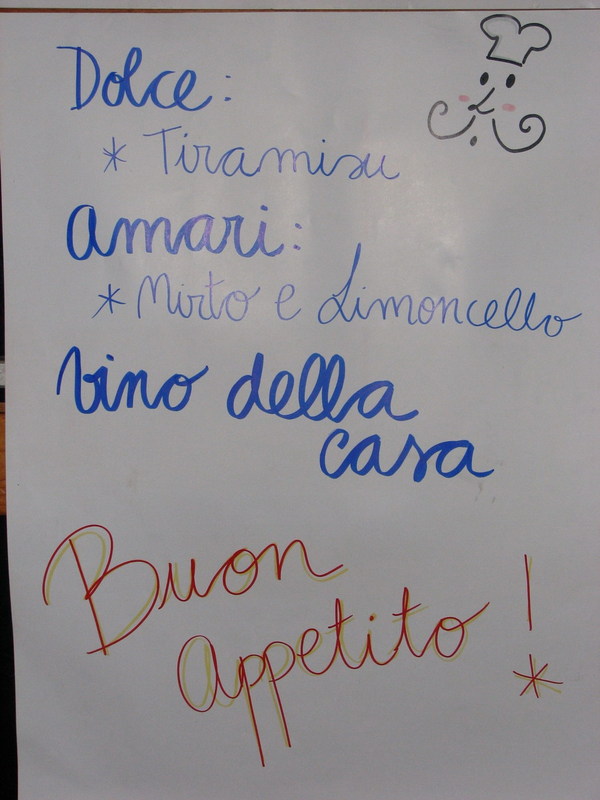 Dolce:
* Tiramisu
Amari:
* Mirto e Limoncello
Vino della
casa
Buon
Appetito!
*